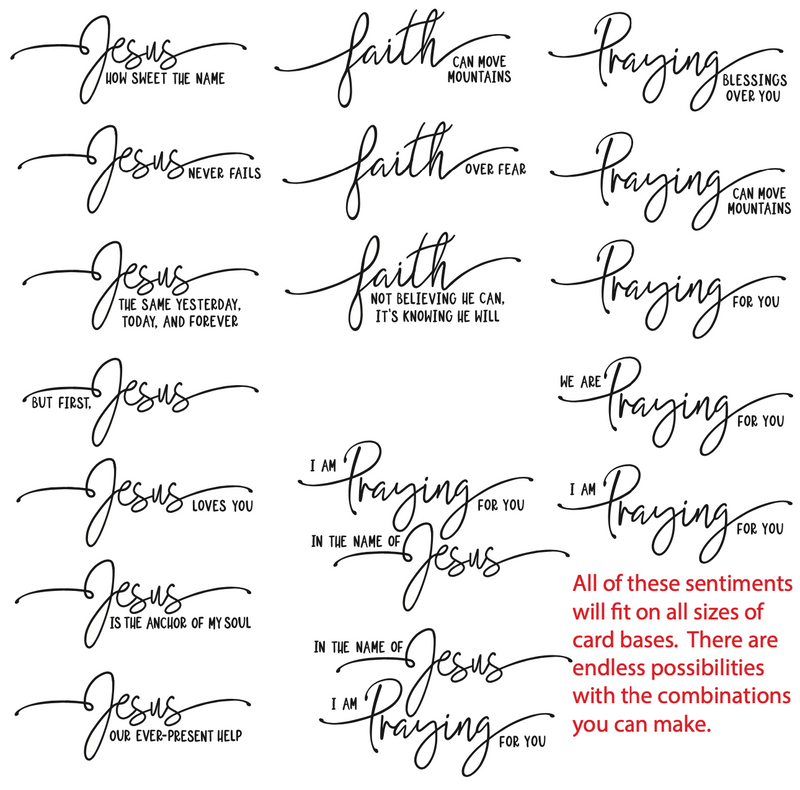 Jesus
HOW SWEET THE NAME
Jesus NEVER FAILS
Jesus
THE SAME YESTERDAY,
TODAY, AND FOREVER
BUT FIRST, Jesus
Jesus LOVES YOU
Jesus
IS THE ANCHOR OF MY SOUL
Jesus
OUR EVER-PRESENT HELP
faith CAN MOVE
MOUNTAINS
faith OVER FEAR
faith
NOT BELIEVING HE CAN,
IT'S KNOWING HE WILL
I AM Praying FOR YOU
IN THE NAME OF Jesus
IN THE NAME OF Jesus
I AM Praying FOR YOU
Praying BLESSINGS
OVER YOU
Praying CAN MOVE
MOUNTAINS
Praying FOR YOU
WE ARE Praying FOR YOU
I AM Praying FOR YOU
All of these sentiments
will fit on all sizes of
card bases. There are
endless possibilities
with the combinations
you can make.